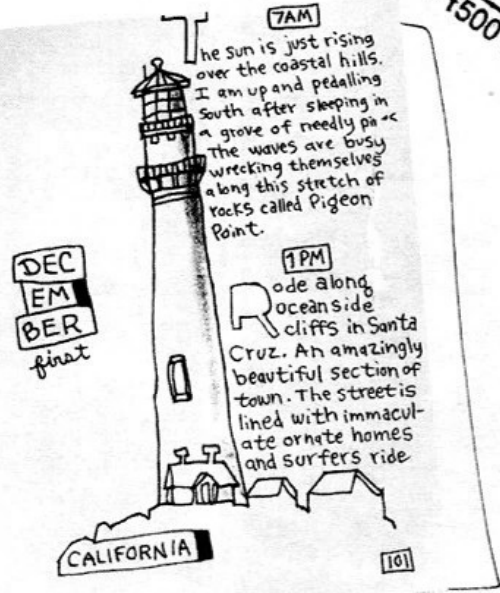 1500
7AM
The sun is just rising
over the coastal hills.
I am up and pedalling
South after sleeping in
a grove of needly
The waves are busy
wrecking themselves
along this stretch of
rocks called Pigeon
Point.
DEC
EM
BER
first
1 PM
Rode along
oceanside
cliffs in Santa
Cruz. An amazingly
beautiful section of
town. The street is
lined with immacul-
ate ornate homes
and surfers ride
CALIFORNIA
101